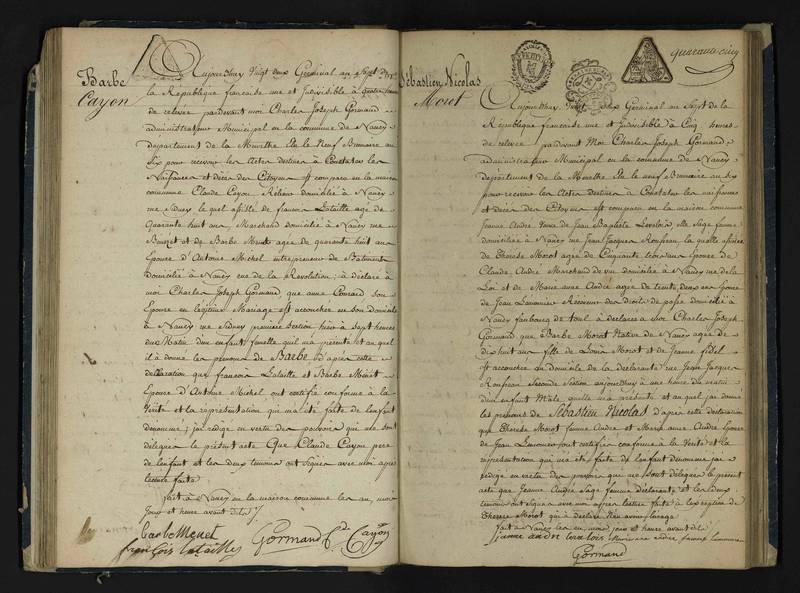 Barbe
Cayon
Aujourd'huy Vingt deux Germinal an Sept de
la République francaise une et Indivisible à quatre heures
de relevée pardevant moi Charles Joseph Gormand
administrateur Municipal en la commune de Nancy
département de la Meurthe Elu le Neuf Brumaire an
Six pour recevoir les Actes destinés à Constater les
Naissances et décès des Citoyens Est comparu en la maison
commune Claude Cayon domicilié à Nancy
rue Sidney le quel assisté de françois Lataille agé de
Quarante huit ans Marchand domicilié à Nancy rue
et de Barbe agée de quarante huit ans
Epouse d'Antoine Michel entrepreneur de Batiments
domiciliés à Nancy rue de la Revolution; à déclaré à
moi Charles Joseph Gormand, que anne son
Epouse en légitime Mariage est accouchée en son domicile
à Nancy rue Sidney première Section hier à Sept heures
du Matin d'un enfant femelle qu'il m'a présenté et au quel
il à donné le prénom de Barbe D'après cette
déclaration que francois Lataille et Barbe
Epouse d'Antoine Michel ont certifié conforme à la
Vérité et la représentation qui m'a été faite de l'enfant
denommé; j'ai rédigé en vertu des pouvoirs qui me sont
délégués le présent acte Que Claude Cayon pere
de l'enfant et les deux temoins ont signés avec moi après
lecture faite
fait à Nancy en la maison commune les an, mois
Jour et heure avant dits
Barbe Menet
françois Lataille Gormand Cd. Cayon
quarante cinq
Sébastien Nicolas
Morot
Aujourd'huy Vingt deux Germinal an Sept de la
République française une et Indivisible à Cinq heures
de relevée pardevant Moi Charles Joseph Gormand
administrateur Municipal en la commune de Nancy
département de la Meurthe Elu le neuf Brumaire an six
pour recevoir les Actes destinés à Constater les naissances
et décès des Citoyens est comparu en la maison commune
Jeanne André de Jean Baptiste Sage femme
domiciliée à Nancy rue Jean Jacques Rousseau, la quelle assistée
de Therese Morot agée de Cinquante Epouse de
Claude André Marchand de vin domicilié à Nancy rue de la
Loi et de Marie anne André agée de trente deux ans Epouse
de Jean Receveur des droits de passe domicilié à
Nancy faubourg de toul à déclaré à Charles Joseph
Gormand que Barbe Morot Native de Nancy agée de
dix huit ans fille de Louis Morot et de Jeanne fidel
Est accouchée au domicile de la déclarante rue Jean Jacques
Rousseau Seconde Section aujourd'huy à une heure du matin
d'un enfant Male qu'elle m'a présenté et au quel j'ai donné
les prénoms de Sébastien Nicolas D'après cette déclaration
que Therese Morot femme André et Marie anne André Epouse
de Jean ont certifié conforme à la Verité et la
représentation qui m'a été faite de l'enfant denommé j'ai
rédigé en vertu des pouvoirs qui me sont délégués le présent
acte que Jeanne André Sage femme déclarante et les deux
temoins ont signés avec moi après lecture faite à l'exception de
Therese Morot qui à déclaré
fait à Nancy les an, mois, jour et heure avant dits
jeanne andre marie anne andre femme
Gormand